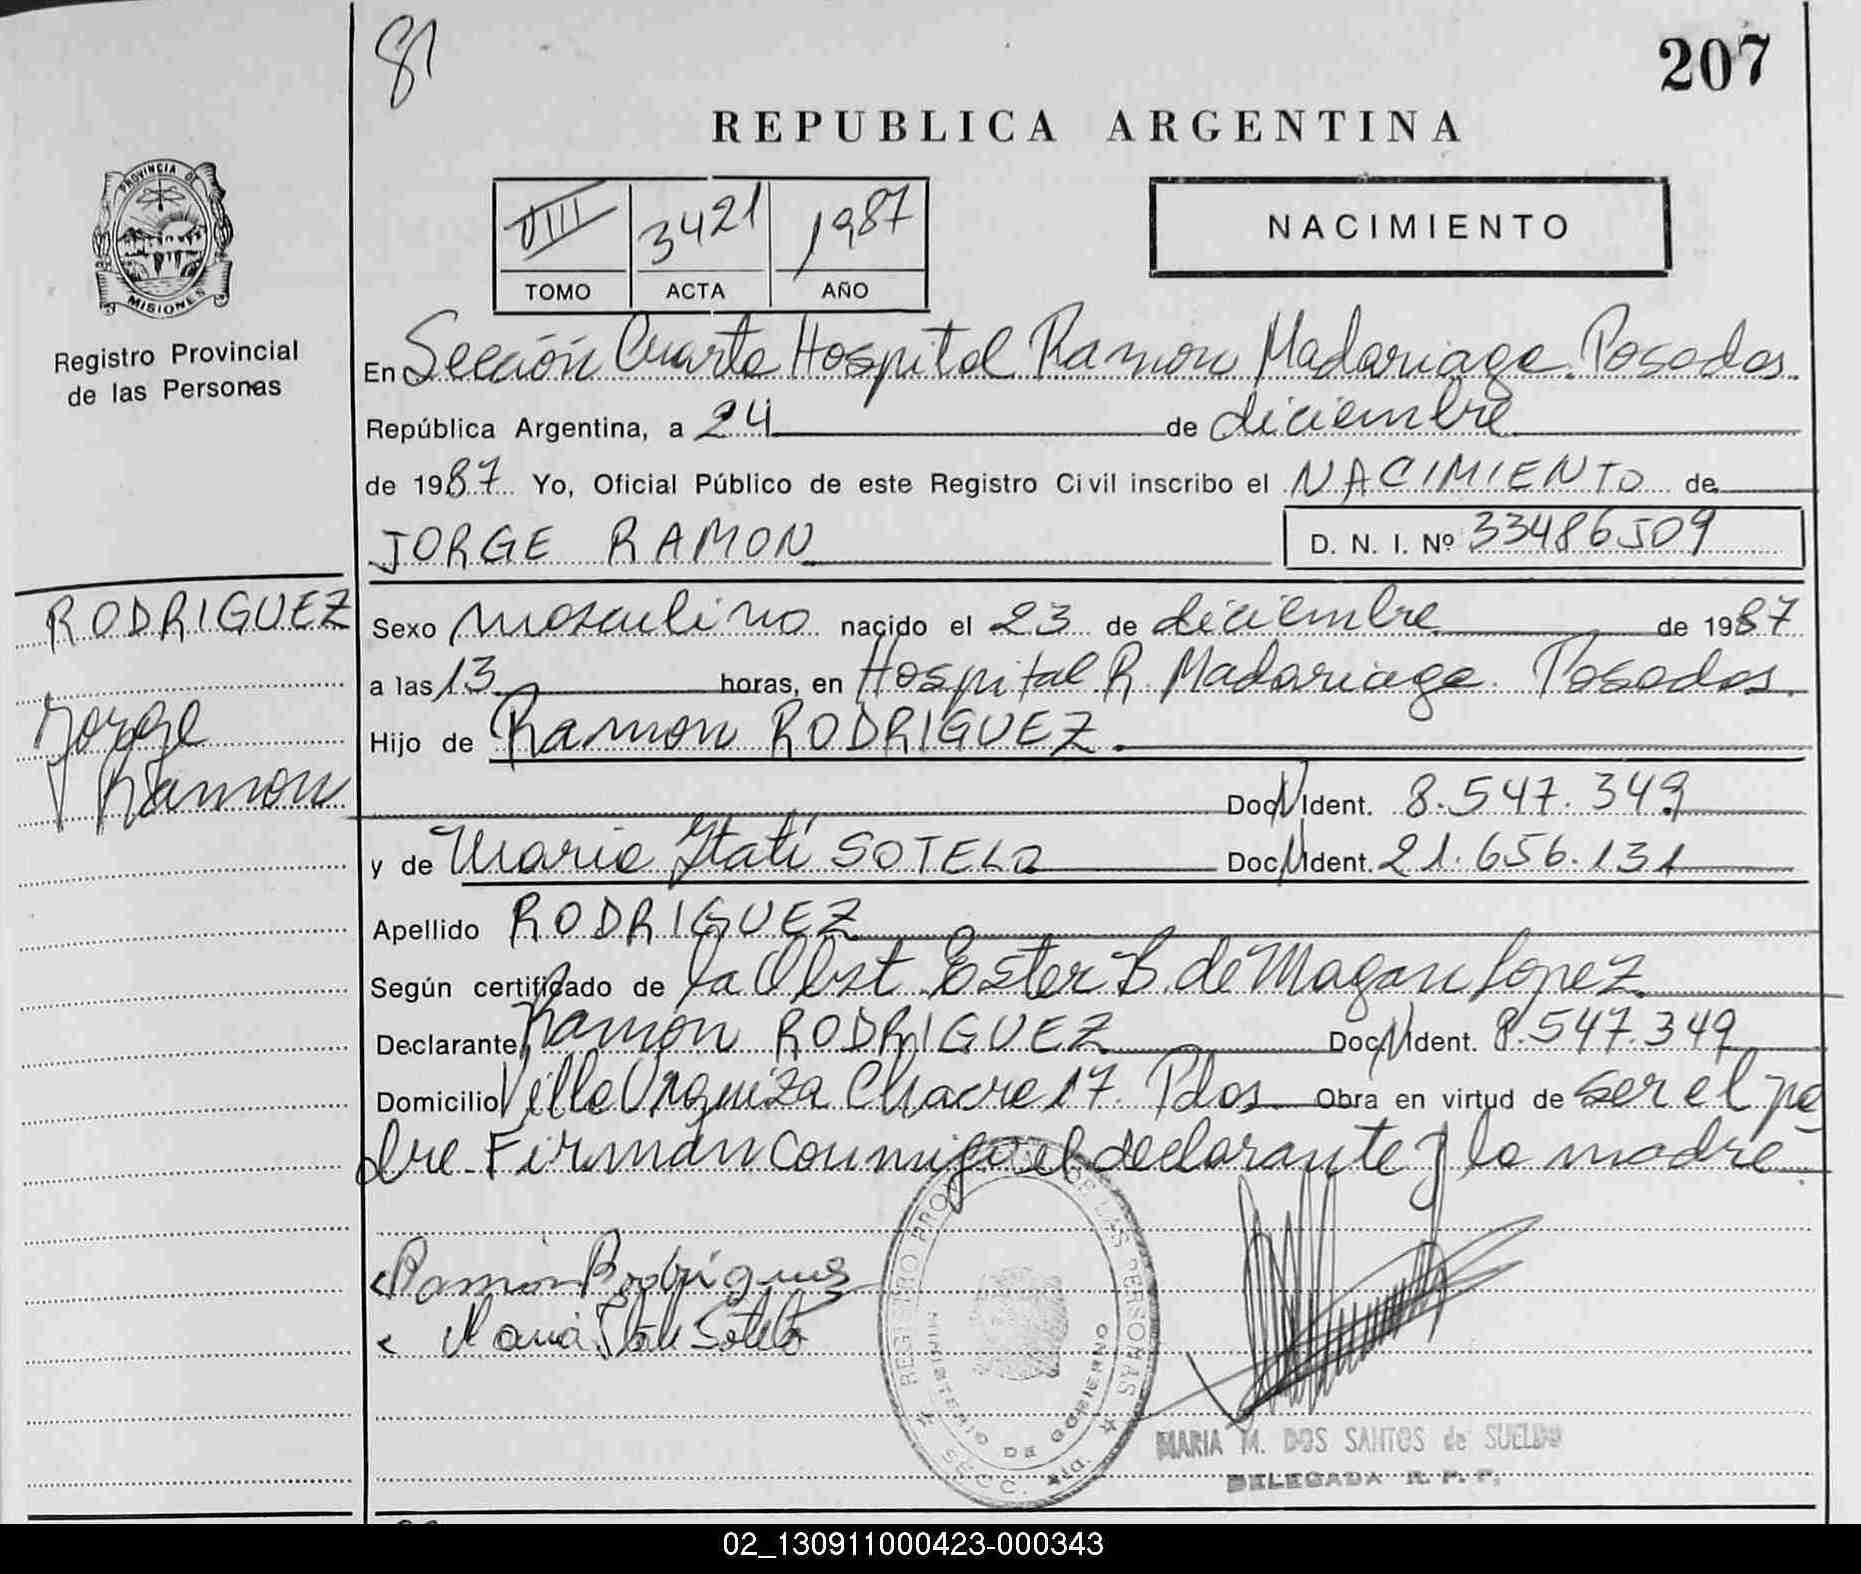 81
207
REPUBLICA ARGENTINA
PROVINCIA DE
MISIONES
VIII 3421 1987
TOMO ACTA AÑO
NACIMIENTO
Registro Provincial
de las Personas
En Sección Cuarta Hospital Ramon Madariaga. Posadas.
República Argentina, a 24 de diciembre
de 1987. Yo, Oficial Público de este Registro Civil inscribo el NACIMIENTO de
JORGE RAMON
D. N. I. Nº 33486509
RODRIGUEZ
Jorge
Ramon
Sexo masculino nacido el 23 de diciembre de 1987
a las 13 horas, en Hospital R. Madariaga. Posadas.
Hijo de Ramon RODRIGUEZ.
Doc. Ident. 8.547.349
y de Maria Itatí SOTELO Doc. Ident. 21.656.131
Apellido RODRIGUEZ
Según certificado de la Obst. Ester B. de Magan Lopez
Declarante Ramon RODRIGUEZ Doc. Ident. 8.547.349
Domicilio Villa Urquiza Chacra 17. Pdas. Obra en virtud de ser el pa
dre. Firman conmigo el declarante y la madre.
Ramon Rodrigues
Maria Itati Sotelo
REGISTRO PROV. DE LAS PERSONAS
MINISTERIO DE GOBIERNO
SECC.
MARIA M. DOS SANTOS de SUELDO
DELEGADA R. P. P.
02_130911000423-000343